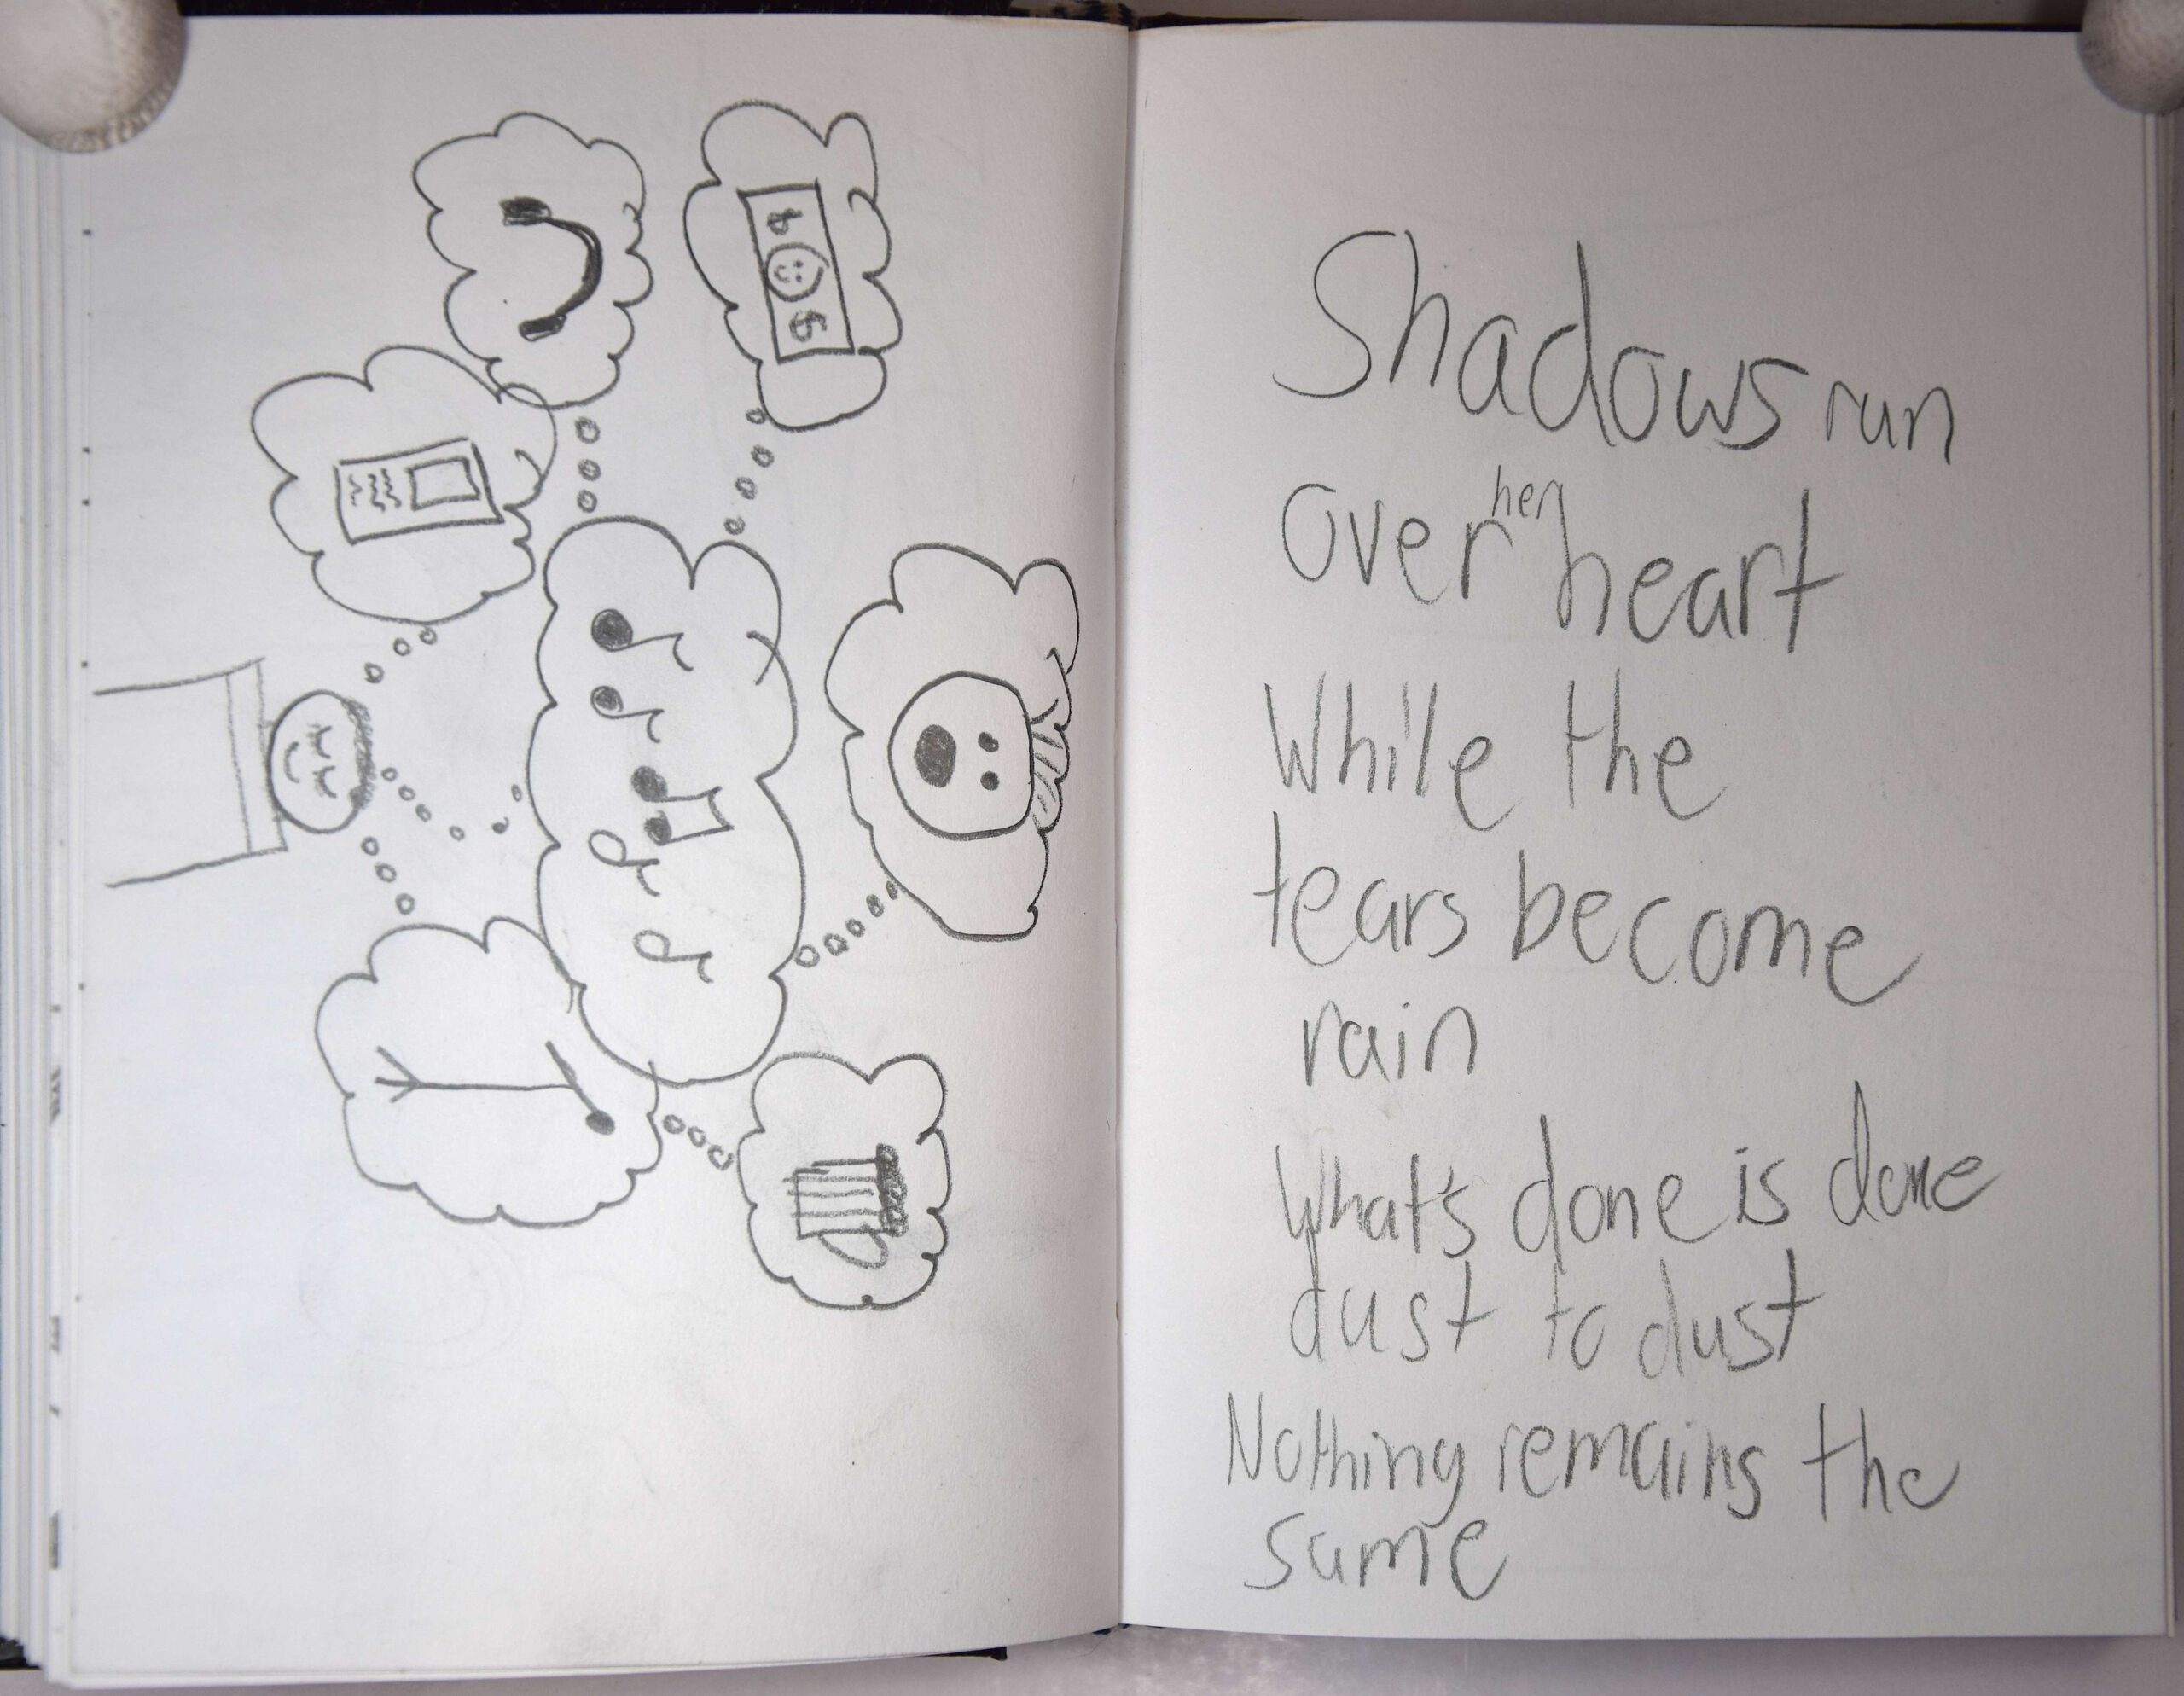 Shadows run
over her heart
While the
tears become
rain
What's done is done
dust to dust
Nothing remains the
same